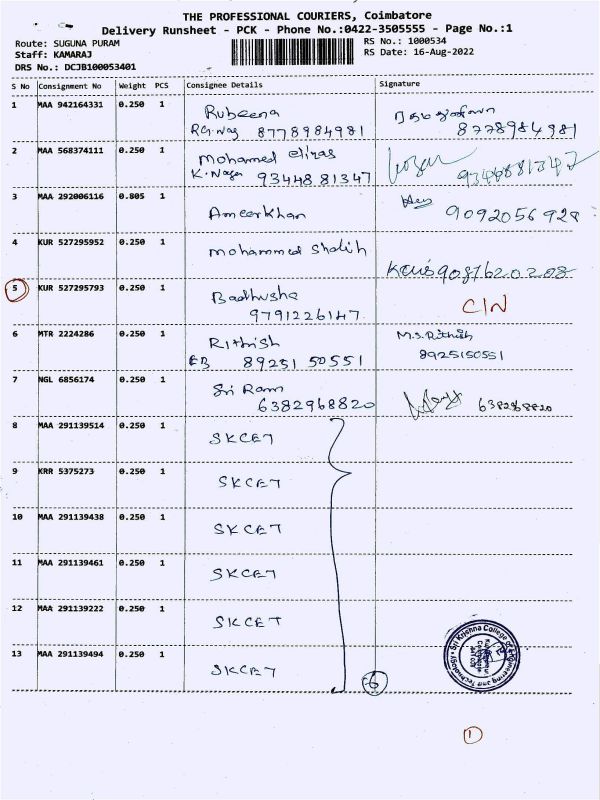 THE PROFESSIONAL COURIERS, Coimbatore
Delivery Runsheet - PCK - Phone No.:0422-3505555 - Page No.:1
Route: SUGUNA PURAM
RS No.: 1000534
Staff: KAMARAJ
RS Date: 16-Aug-2022
DRS No.: DCJB100053401
S No Consignment No Weight PCS Consignee Details Signature
1 MAA 942164331 0.250 1 Rubeena
R.G.Nag 8778984981 8778984981
2 MAA 568374111 0.250 1 Mohamed
K.Nagar 93448 81347
3 MAA 292006116 0.805 1 Ameerkhan 9092056928
4 KUR 527295952 0.250 1 Mohammed Shalih
5 KUR 527295793 0.250 1 Badhusha CIN
9791226147
6 MTR 2224286 0.250 1 Rithish M.S.Rithish
EB 89251 50551 8925150551
7 NGL 6856174 0.250 1 Sri Ram
6382968820 6382968820
8 MAA 291139514 0.250 1 SKCET
9 KRR 5375273 0.250 1 SKCET
10 MAA 291139438 0.250 1 SKCET
11 MAA 291139461 0.250 1 SKCET
12 MAA 291139222 0.250 1 SKCET
13 MAA 291139494 0.250 1 SKCET
6
Sri Krishna College of Engineering and Technology
1